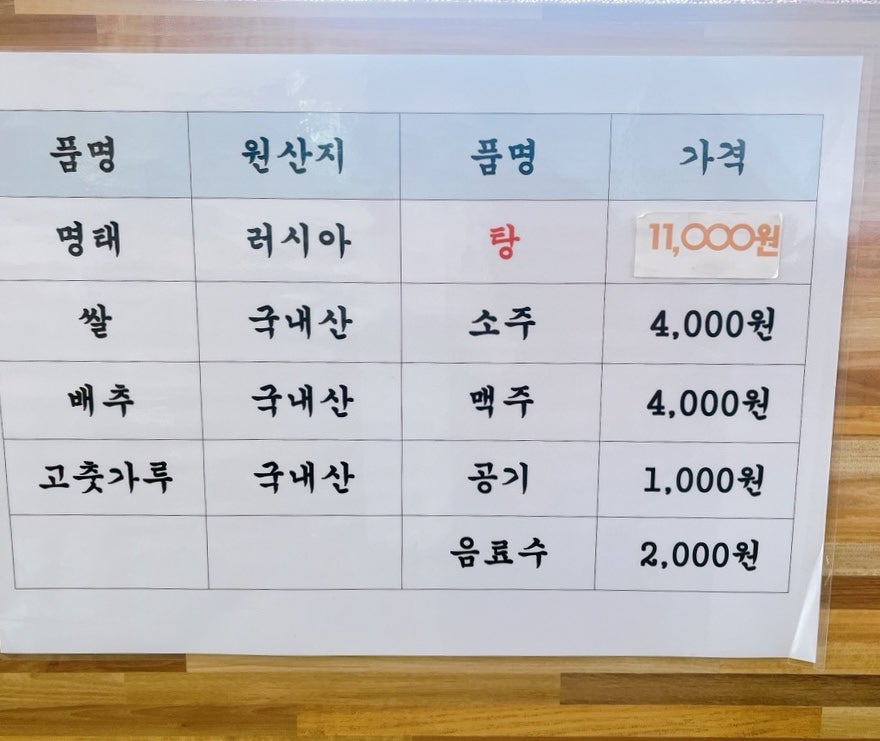 품명 원산지 품명 가격
명태 러시아 탕 11,000원
쌀 국내산 소주 4,000원
배추 국내산 맥주 4,000원
고춧가루 국내산 공기 1,000원
음료수 2,000원